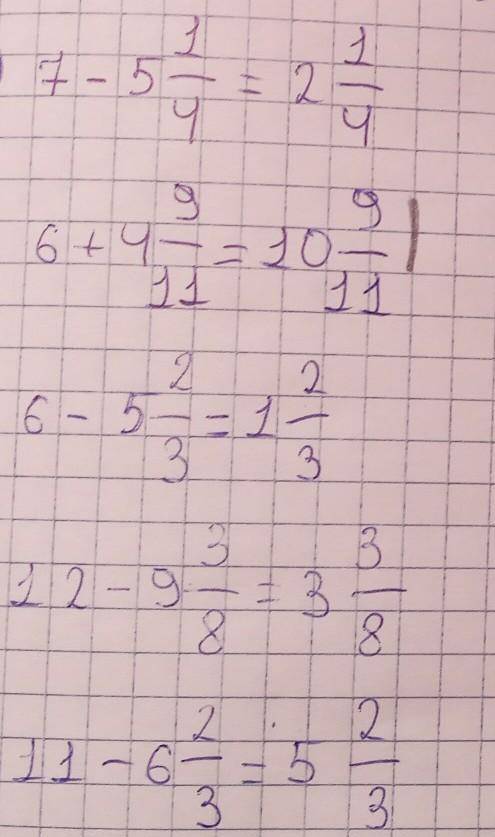 7 - 5 1/4 = 2 1/4
6 + 4 9/11 = 10 9/11
6 - 5 2/3 = 1 2/3
12 - 9 3/8 = 3 3/8
11 - 6 2/3 = 5 2/3